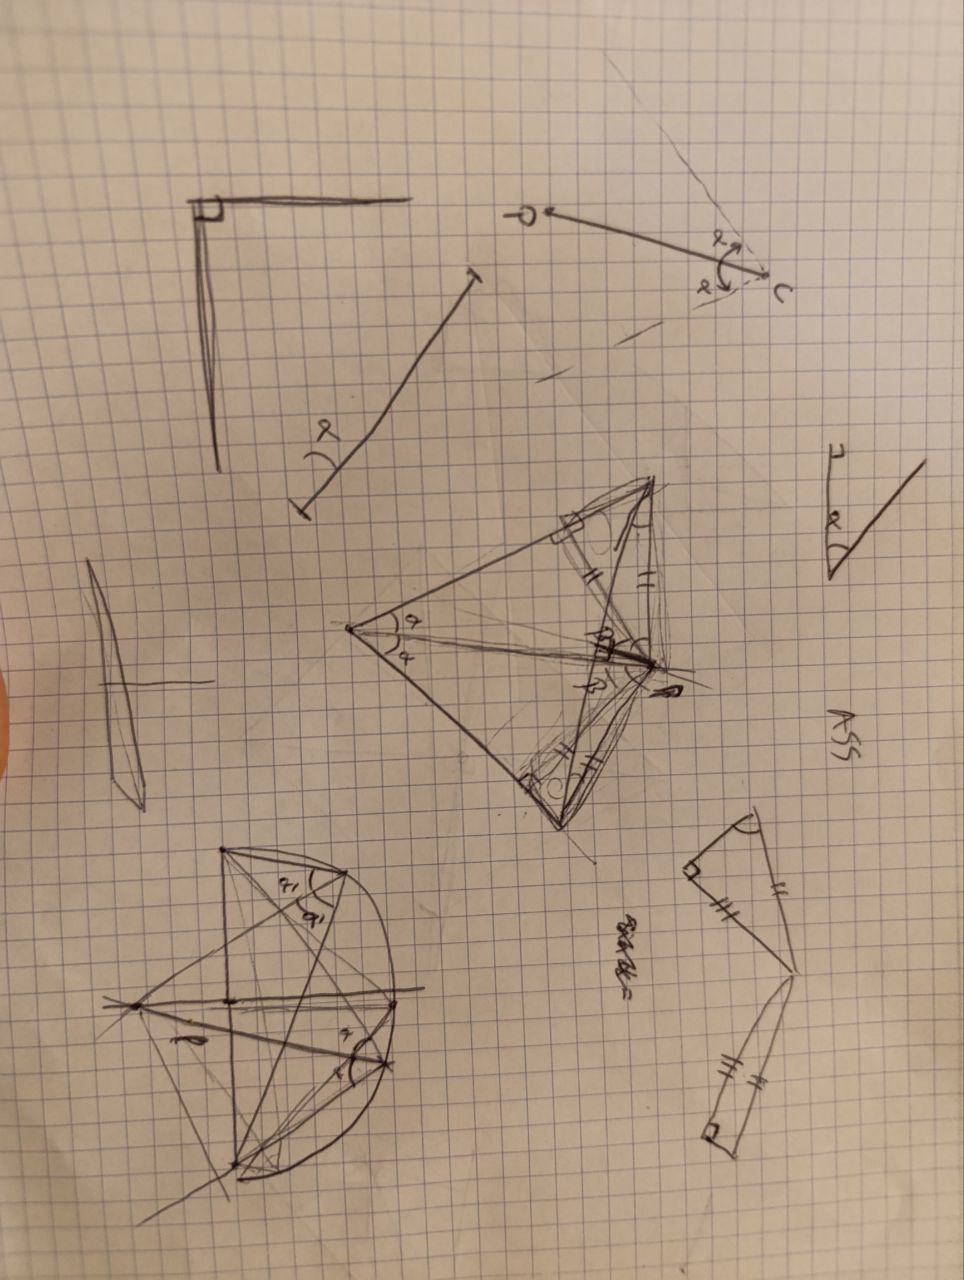 α
ASS
C
α
α
P
β
β
α
α
α
α' α'
α
P